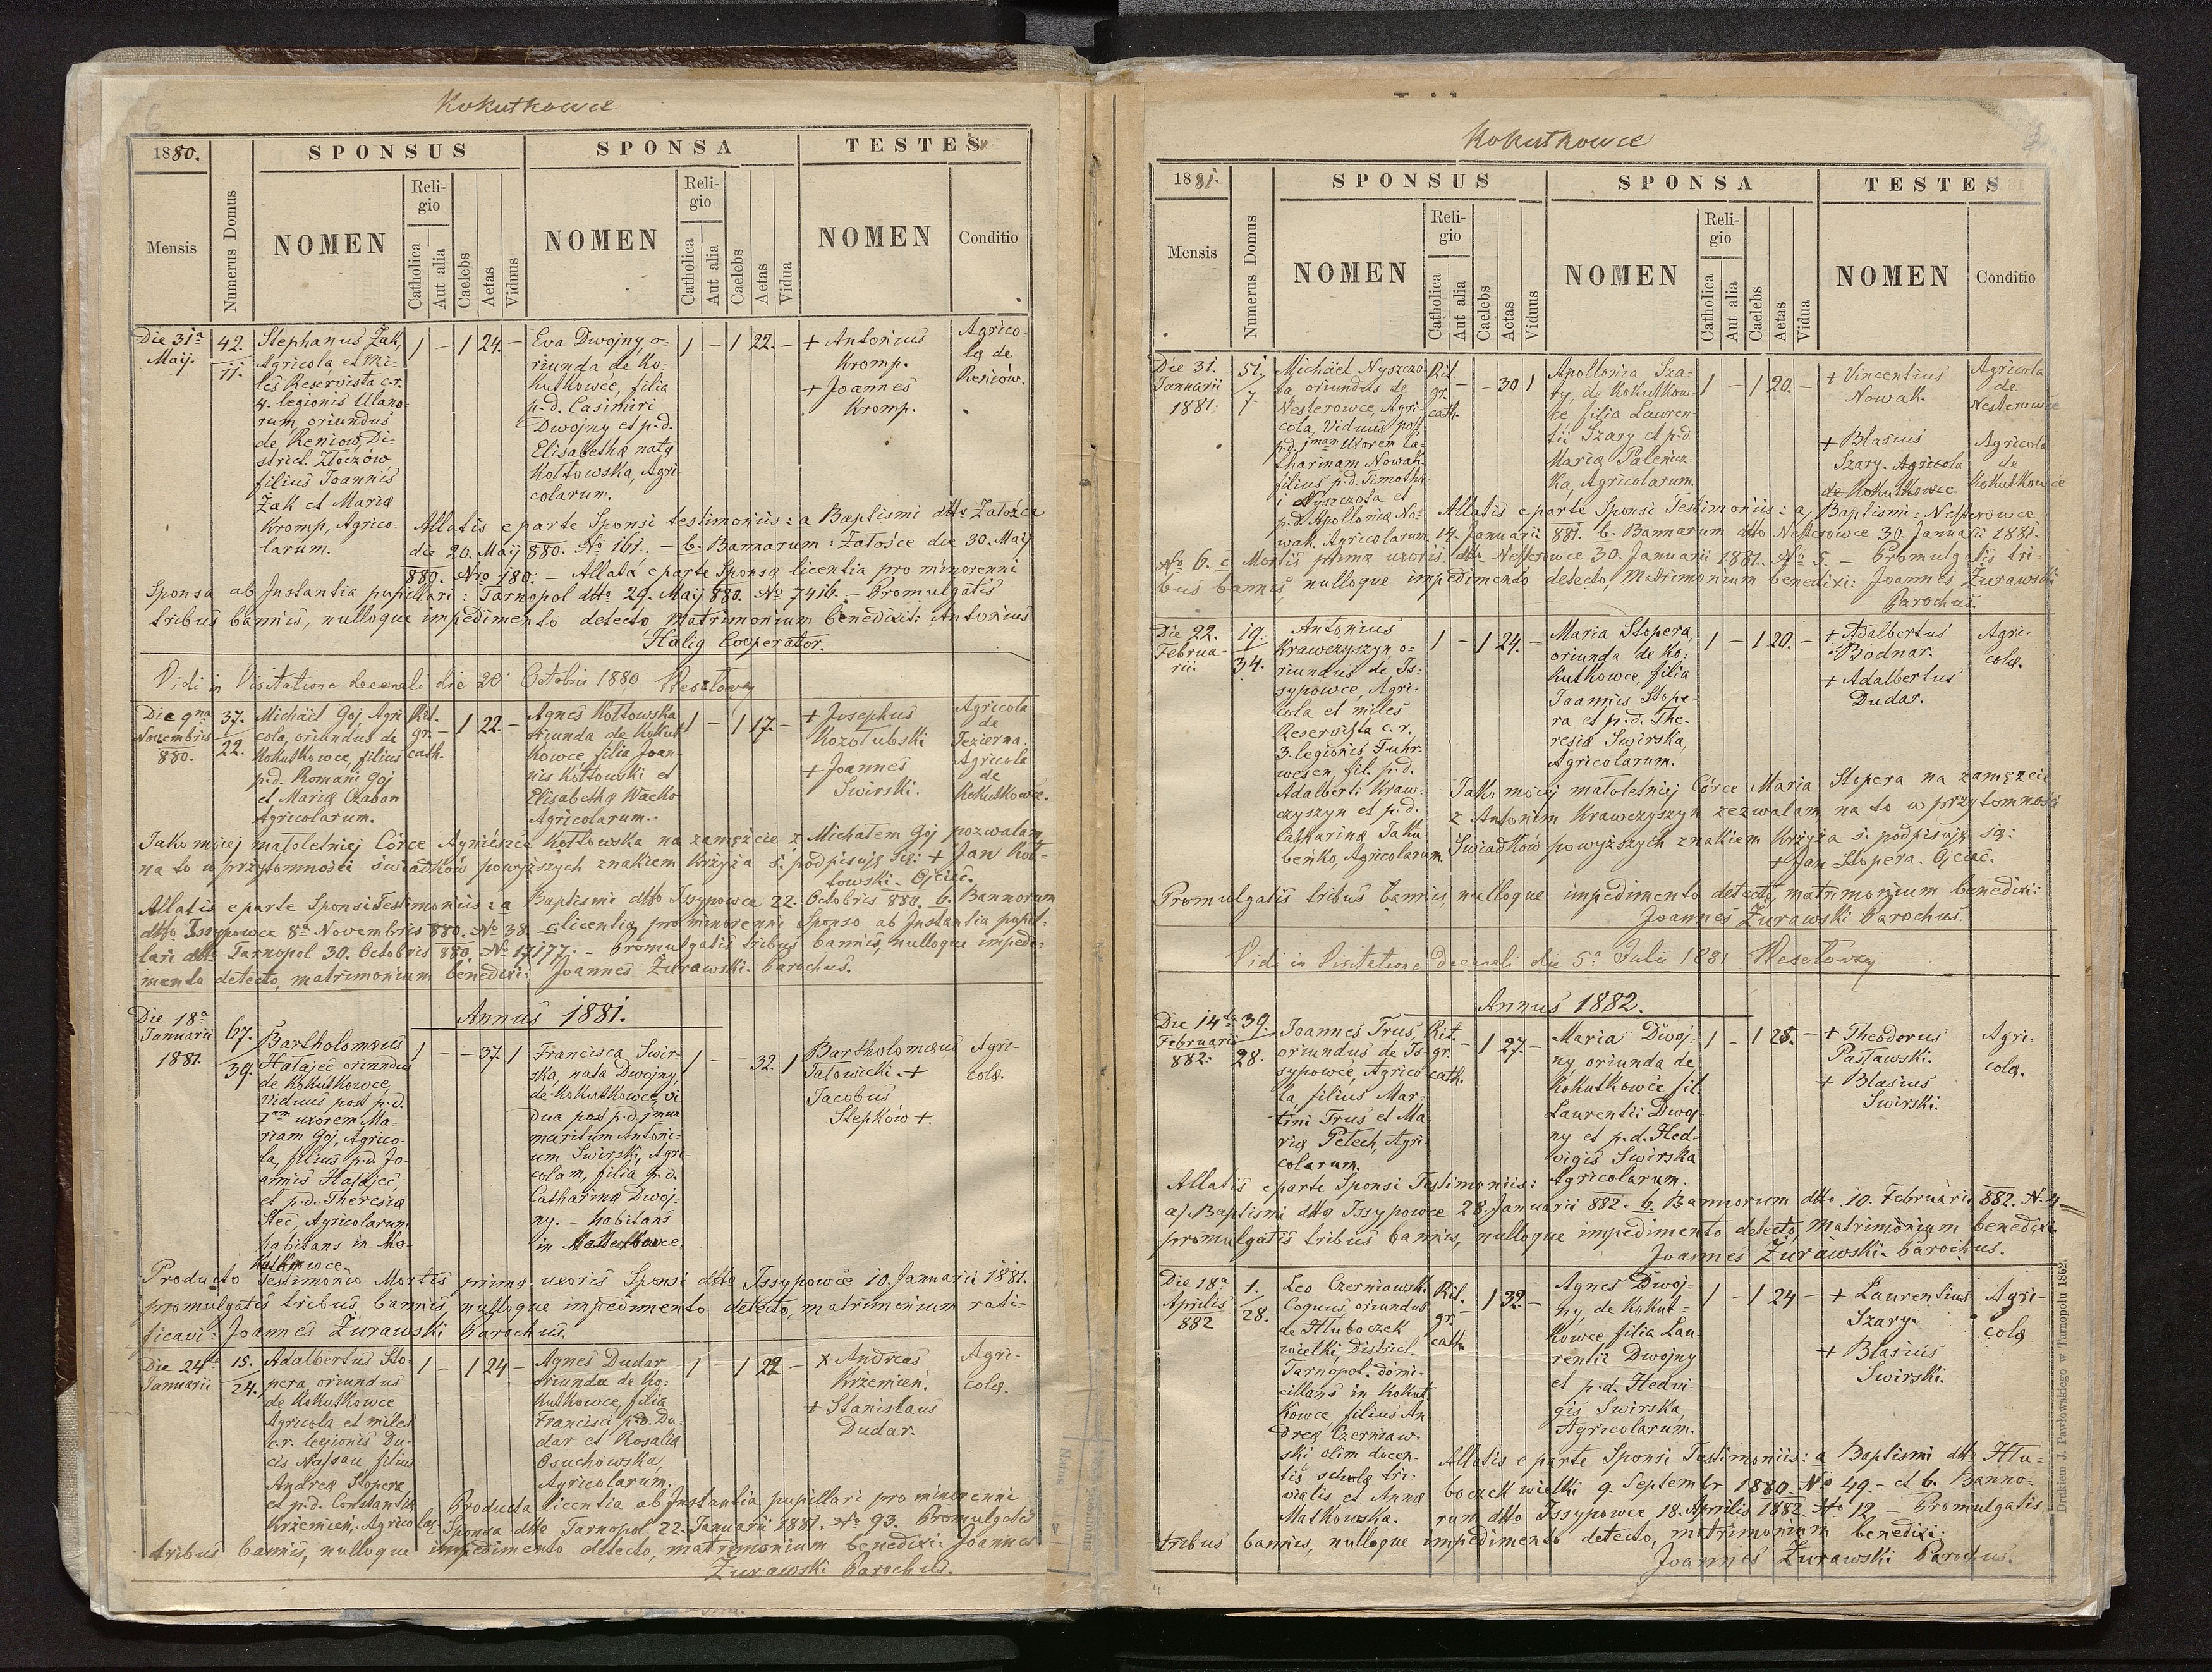 Kokutkowce
1880.
SPONSUS
SPONSA
TESTES
Mensis
Numerus Domus
NOMEN
Reli-
gio
Catholica
Aut alia
Caelebs
Aetas
Viduus
NOMEN
Reli-
gio
Catholica
Aut alia
Caelebs
Aetas
Vidua
NOMEN
Conditio
Die 31a
Maij.
42.
11.
Stephanus Żak
Agricola et Mi-
les Reservista c.r.
4. legionis Ulano-
rum oriundus
de Reniów, Di-
strict. Złoczów
filius Joannis
Żak et Mariæ
Kromp, Agrico-
larum.
1 - 1 24. -
Eva Dwojny, o-
riunda de Ko-
kutkowce, filia
p.d. Casimiri
Dwojny et p.d.
Elisabethæ natæ
Kołtowska, Agri-
colarum.
1 - 1 22. -
+ Antonius
Kromp.
+ Joannes
Kromp.
Agrico-
læ de
Reniów.
Allatis e parte Sponsi testimoniis: a Baptismi dtto Załoźce
die 20. Maij 880. No 161. - b. Bannorum: Załośce die 30. Maij
880. Nro 180. - Allata e parte Sponsæ licentia pro minorenni
Sponsa ab Instantia pupillari: Tarnopol dtto 29. Maij 880. No 7416. - Promulgatis
tribus bannis, nulloque impedimento detecto matrimonium benedixit: Antonius
Halig Cooperator.
Vidi in Visitatione decanali die 20. Octobris 1880
Die 9na
Novembris
880.
37.
22.
Michäel Goj, Agri-
cola, oriundus de
Kokutkowce, filius
p.d. Romani Goj
et Mariæ Czaban
Agricolarum.
Rit.
gr.
cath.
- 1 22 -
Agnes Kołtowska
oriunda de Kokut-
kowce filia Joan-
nis Kołtowski et
Elisabethæ Wacko
Agricolarum.
1 - 1 17. -
+ Josephus
Kozołubski
+ Joannes
Swirski.
Agricola
de
Jezierna.
Agricola
de
Kokutkowce.
Jako mojej małoletniej Córce Agnieszce Kołtowska na zamęźcie z Michałem Goj pozwalam
na to w przytomności świadków powyższych znakiem Krzyża ś. podpisuję się: + Jan Koł-
towski. Ojciec.
Allatis e parte Sponsi Testimoniis: a Baptismi dtto Issypowce 22. Octobris 880. b. Bannorum
dtto Issypowce 8a Novembris 880. No 38. c licentia pro minorenni Sponso ab Instantia pupil-
lari dtto Tarnopol 30. Octobris 880. No 17177. - Promulgatis tribus bannis, nulloque impedi-
mento detecto, matrimonium benedixi: Joannes Żurawski. Parochus.
Annus 1881.
Die 18a
Januarii
1881.
67.
39.
Bartholomæus
Hałajec oriundus
de Kokutkowce,
Viduus post p.d.
Iam uxorem Ma-
riam Goj, Agrico-
la, filius p.d. Jo-
annis Hałajec
et p.d. Theresiæ
Stec, Agricolarum
habitans in Ko-
kutkowce.
1 - - 37. 1
Francisca Swir-
ska, nata Dwojny,
de Kokutkowce, vi-
dua post p.d. Imum
maritum Antoni-
um Swirski, Agri-
colam, filia p.d.
Catharinæ Dwoj-
ny. - habitans
in
1 - - 32. 1
Bartholomæus
Jałowicki. +
Jacobus
Stepków +.
Agri-
colæ.
Producto Testimonio Mortis primæ uxoris Sponsi dtto Issypowce 10. Januarii 1881.
promulgatis tribus bannis, nulloque impedimento detecto, matrimonium rati-
ficavi: Joannes Żurawski Parochus.
Die 24a
Januarii
15.
24.
Adalbertus Sto-
pera oriundus
de Kokutkowce
Agricola et miles
c.r. legionis Du-
cis Nassau, filius
Andreæ Stopera
et p.d. Constantiæ
Krzemień. Agricolar.
1 - 1 24 -
Agnes Dudar
oriunda de Ko-
kutkowce, filia
Francisci p.d. Du-
dar et Rosaliæ
Osuchowska,
Agricolarum.
1 - 1 22 -
x Andreas
Krzemień.
+ Stanislaus
Dudar.
Agri-
colæ.
Producta licentia ab Instantia pupillari pro minorenni
Sponsa dtto Tarnopol 22. Januarii 1881. No 93. Promulgatis
tribus bannis, nulloque impedimento detecto, matrimonium benedixi: Joannes
Żurawski Parochus.
Kokutkowce
1881.
SPONSUS
SPONSA
TESTES
Mensis
Numerus Domus
NOMEN
Reli-
gio
Catholica
Aut alia
Caelebs
Aetas
Viduus
NOMEN
Reli-
gio
Catholica
Aut alia
Caelebs
Aetas
Vidua
NOMEN
Conditio
Die 31.
Januarii
1881.
51.
7.
Michäel Nyszczo-
ta oriundus de
Nesterowce, Agri-
cola, Viduus post
p.d. Imam Uxorem Ca-
tharinam Nowak.
filius p.d. Timothe-
i Nyszczota et
p.d. Apolloniæ No-
wak. Agricolarum.
Rit.
gr.
cath.
- - 30 1
Apollonia Sza-
ry, de Kokutkow-
ce filia Lauren-
tii Szary et p.d.
Mariæ Paleńcz-
ka, Agricolarum.
1 - 1 20. -
+ Vincentius
Nowak.
+ Blasius
Szary. Agricola
de Kokutkowce
Agricola
de
Nesterowce
Agricola
de
Kokutkowce
Allatis e parte Sponsi Testimoniis: a, Baptismi: Nesterowce
14. Januarii 881. b. Bannorum dtto Nesterowce 30. Januarii 1881.
No 6. c Mortis primæ uxoris dtto Nesterowce 30. Januarii 1881. No 5. - Promulgatis tri-
bus bannis, nulloque impedimento detecto, Matrimonium benedixi: Joannes Żurawski
Parochus.
Die 22.
Februa-
rii.
19.
34.
Antonius
Krawczyszyn o-
riundus de Is-
sypowce, Agri-
cola et miles
Reservista c.r.
3. legionis Fuhr-
wesen, fil. p.d.
Adalberti Kraw-
czyszyn et p.d.
Catharinæ Jaku-
beńko, Agricolarum.
1 - 1 24. -
Maria Stopera,
oriunda de Ko-
kutkowce, filia
Joannis Stope-
ra et p.d. The-
resiæ Swirska,
Agricolarum.
1 - 1 20. -
+ Adalbertus
Bodnar.
+ Adalbertus
Dudar.
Agri-
colæ.
Jako mojej małoletniej Córce Maria Stopera na zamęzcie
z Antonim Krawczyszyn zezwalam na to w przytomności
Świadków powyższych znakiem Krzyża ś. podpisuję się:
+ Jan Stopera. Ojciec.
Promulgatis tribus bannis, nulloque impedimento detecto, matrimonium benedixi:
Joannes Żurawski Parochus.
Vidi in Visitatione decanali die 5a Julii 1881
Annus 1882.
Die 14a
Februarii
882.
39.
28.
Joannes Trus,
oriundus de Is-
sypowce, Agrico-
la, filius Mar-
tini Trus et Ma-
riæ Petech, Agri-
colarum.
Rit.
gr.
cath.
- 1 27 -
Maria Dwoj-
ny, oriunda de
Kokutkowce fil.
Laurentii Dwoj-
ny et p.d. Hed-
vigis Swirska
Agricolarum.
1 - 1 28. -
+ Theodorus
Pasławski.
+ Blasius
Swirski.
Agri-
colæ.
Allatis e parte Sponsi Testimoniis:
a) Baptismi dtto Issypowce 28. Januarii 882. b. Bannorum dtto 10. Februarii 882. N. 4.
promulgatis tribus bannis, nulloque impedimento detecto, matrimonium benedixi.
Joannes Żurawski. Parochus.
Die 18a
Aprilis
882
1.
28.
Leo Czerniawski
Coquus oriundus
de Hłuboczek
wielki, District.
Tarnopol. domi-
cillans in Kokut-
kowce, filius An-
dreæ Czerniaw-
ski olim docen-
tis scholæ tri-
vialis et Annæ
Matkowska.
Rit.
gr.
cath.
- 1 32. -
Agnes Dwoj-
ny, de Kokut-
kowce filia Lau-
rentii Dwojny
et p.d. Hedvi-
gis Swirska,
Agricolarum.
1 - 1 24 -
+ Laurentius
Szary.
+ Blasius
Swirski.
Agri-
colæ
Allatis e parte Sponsi Testimoniis: a Baptismi dtto Hłu-
boczek wielki 9. Septembr. 1880. No 49. - et b. Banno-
rum dtto Issypowce 18. Aprilis 1882. No 12 - Promulgatis
tribus bannis, nulloque impedimento detecto, matrimonium benedixi:
Joannes Żurawski Parochus.
Drukiem J. Pawłowskiego w Tarnopolu 1862.